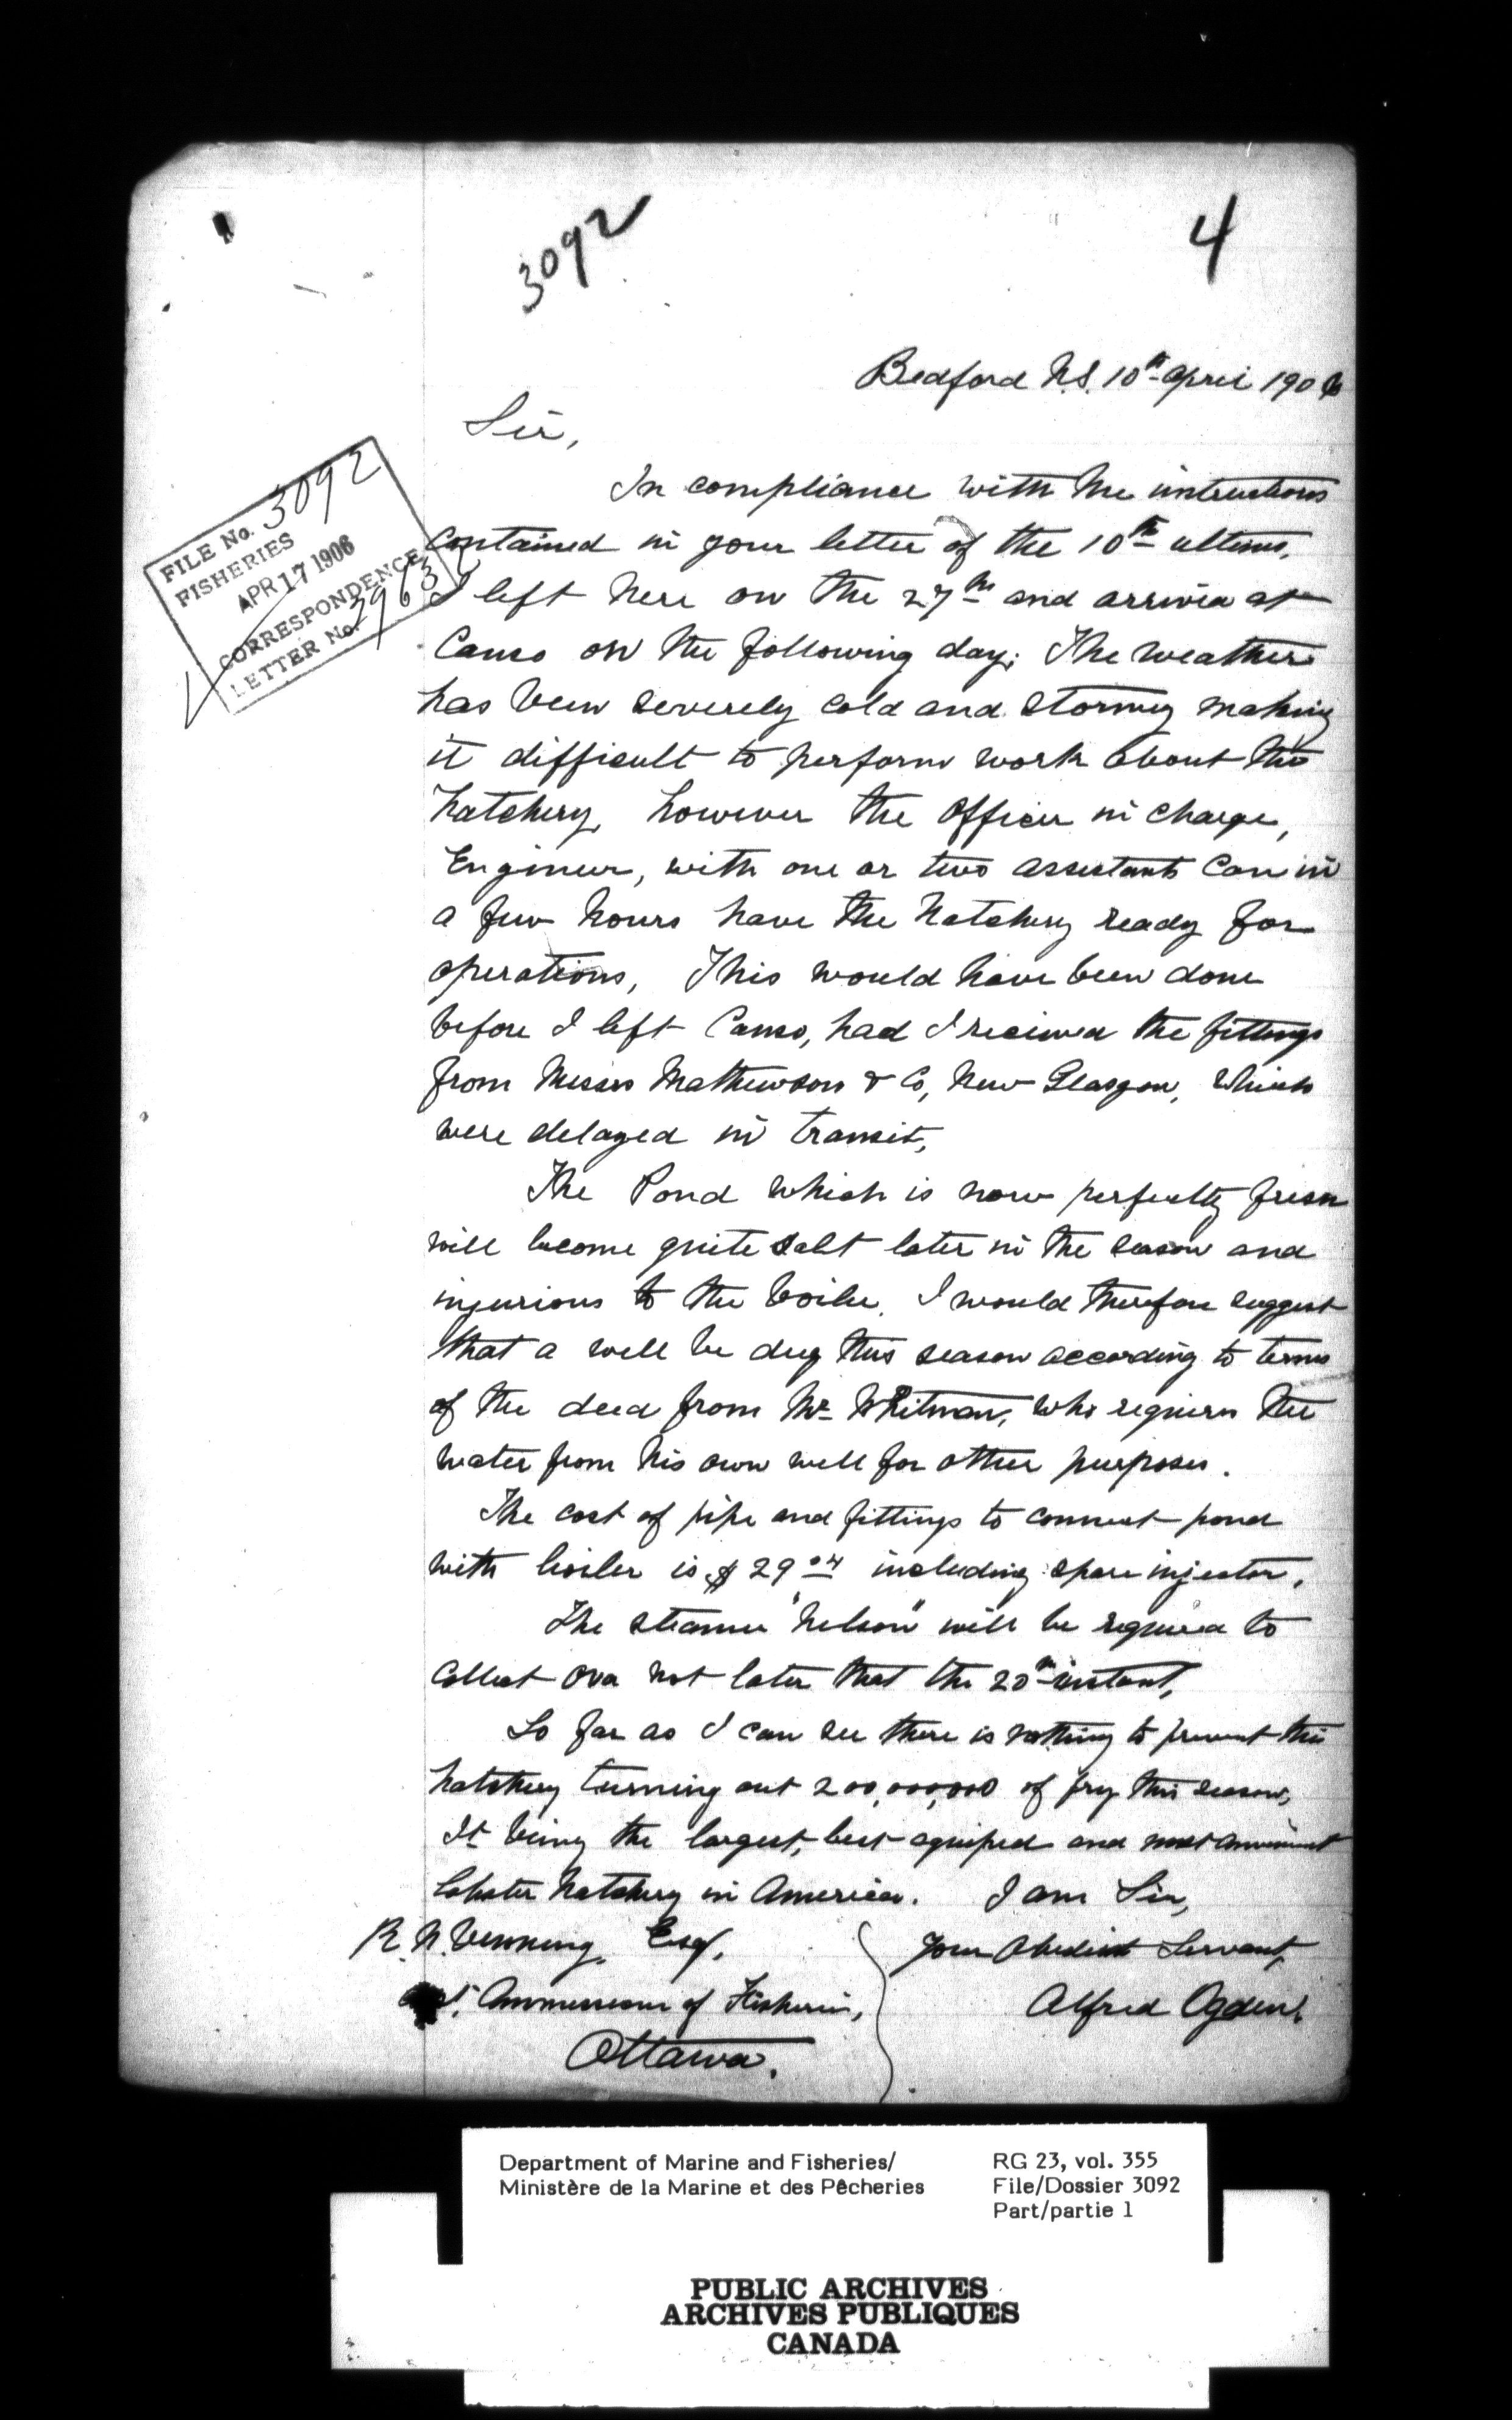 3092
4
Bedford N.S. 10th April 1906
Sir,
In compliance with the instructions
contained in your letter of the 10th ultimo,
I left here on the 27th and arrived at
Canso on the following day; The weather
has been severely cold and stormy making
it difficult to perform work about the
hatchery, however the Officer in charge,
Engineer, with one or two assistants can in
a few hours have the hatchery ready for
operations, This would have been done
before I left Canso, had I received the fittings
from Messrs Mathewson & Co, New Glasgow, which
were delayed in transit,
The Pond which is now perfectly fresh
will become quite salt later in the season and
injurious to the boiler. I would therefore suggest
that a well be dug this season according to terms
of the deed from Mr Whitman, who requires the
water from his own well for other purposes.
The cost of pipe and fittings to connect pond
with boiler is $29.04 including spare injector.
The steamer "Nelson" will be required to
collect ova not later that the 20th instant,
So far as I can see there is nothing to prevent this
hatchery turning out 200,000,000 of fry this season,
It being the largest, best equiped and most convenient
lobster hatchery in America. I am Sir,
Your Obedient Servant,
Alfred Ogden.
R. N. Venning, Esq,
Commissioner of Fisheries,
Ottawa.
FILE No. 3092
FISHERIES
APR 17 1906
CORRESPONDENCE
LETTER No.
Department of Marine and Fisheries/
Ministère de la Marine et des Pêcheries
RG 23, vol. 355
File/Dossier 3092
Part/partie 1
PUBLIC ARCHIVES
ARCHIVES PUBLIQUES
CANADA